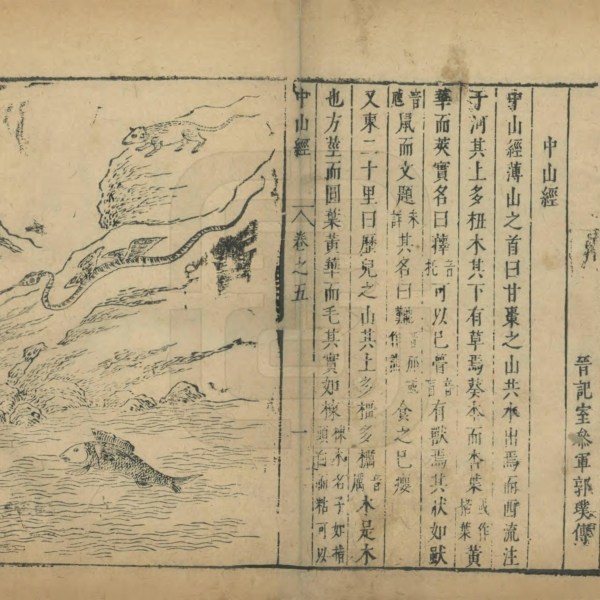 中山經
晉記室參軍郭璞傳
中山經薄山之首曰甘棗之山共水出焉而西流注
于河其上多杻木其下有草焉葵本而杏葉或作楛葉黃
華而莢實名曰籜音托可以已瞢音盲有獸焉其狀如
鼠而文題其名曰食之已癭
又東二十里曰歷兒之山其上多橿多櫔音厲木是木
也方莖而圓葉黃華而毛其實如楝楝木名子如指頭白而粘可以
中山經 卷之五 一